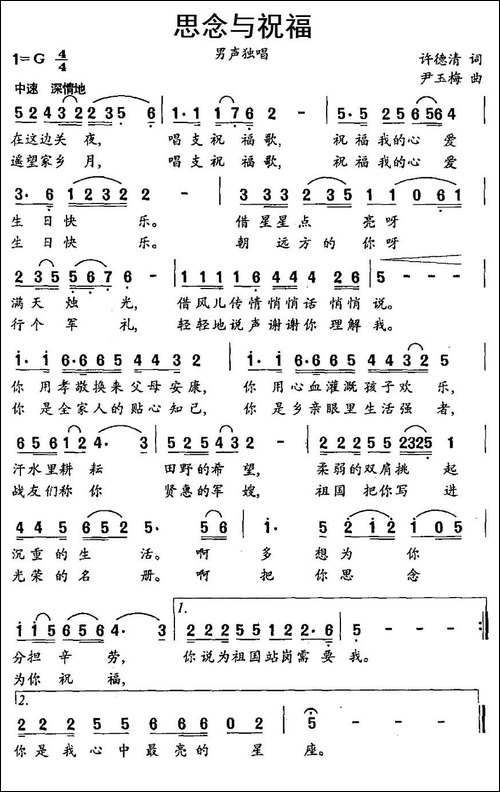 思念与祝福
男声独唱
1=G 4/4
许德清 词
尹玉梅 曲
中速 深情地
5 2 4 3 2 2 2 3 5 6 | 1·1 1 1 7 6 2 - | 5·5 2 5 6 5 6 4
在这边关 夜， 唱支祝 福歌， 祝福我的心 爱
遥望家乡 月， 唱支祝 福歌， 祝福我的心 爱
3·6 1 2 3 2 2 - | 3 3 3 3 2 3 5 1 1 0 6 1
生日快 乐。 借星星点 亮呀
生日快 乐。 朝远方的 你呀
2 3 5 5 6 7 6 - | 1 1 1 1 6 3 4 4 4 2 6 | 5 - - -
满天 烛 光， 借风儿传情悄悄话 悄悄说。
行个 军 礼， 轻轻地说声谢谢你 理解我。
i·i 6·6 6 5 4 4 3 2 | i·i 6·6 6 5 4 4 3 2 5
你 用孝敬换来父母安康， 你 用心血灌溉孩子欢 乐，
你 是全家人的贴心知己， 你 是乡亲眼里生活强者，
6 5 6 1 2 4·3 | 5 2 5 4 3 2 - | 2 2 2 5 5 2 3 2 5 1
汗水里耕 耘 田野的希 望， 柔弱的双肩挑 起
战友们称 你 贤惠的军 嫂， 祖国 把你写 进
4 4 5 6 5 2 5· 5 6 | i· 5 2 i 2 i 0 5
沉重的生 活。啊 多 想为 你
光荣的名 册。啊 把 你思 念
i i 5 6 5 6 4·3 | 1. 2 2 2 5 5 1 2 2·6 | 5 - - - :‖
分担辛 劳， 你说为祖国站岗需 要我。
为你祝 福，
2.
2 2 2 5 6 6 6 0 2 | 5 - - - ‖
你是我心中最亮的 星 座。